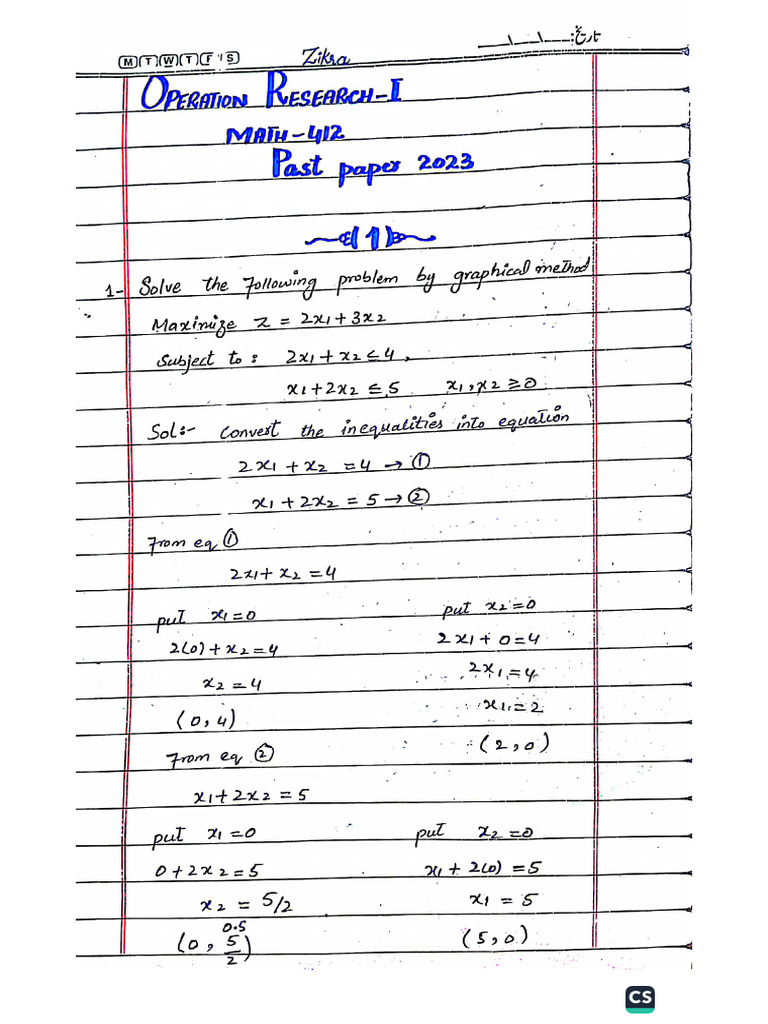 تاریخ:
M T W T F S Zikra
OPERATION RESEARCH-I
MATH-412
Past paper 2023
1
1- Solve the following problem by graphical method
Maximize z = 2x1 + 3x2
Subject to : 2x1 + x2 ≤ 4 ,
x1 + 2x2 ≤ 5 x1 , x2 ≥ 0
Sol:- Convert the inequalities into equation
2x1 + x2 = 4 → ①
x1 + 2x2 = 5 → ②
From eq ①
2x1 + x2 = 4
put x1 = 0 put x2 = 0
2(0) + x2 = 4 2x1 + 0 = 4
x2 = 4 2x1 = 4
(0, 4) x1 = 2
From eq ② (2, 0)
x1 + 2x2 = 5
put x1 = 0 put x2 = 0
0 + 2x2 = 5 x1 + 2(0) = 5
x2 = 5/2 x1 = 5
0.5
(0, 5/2) (5, 0)
CS